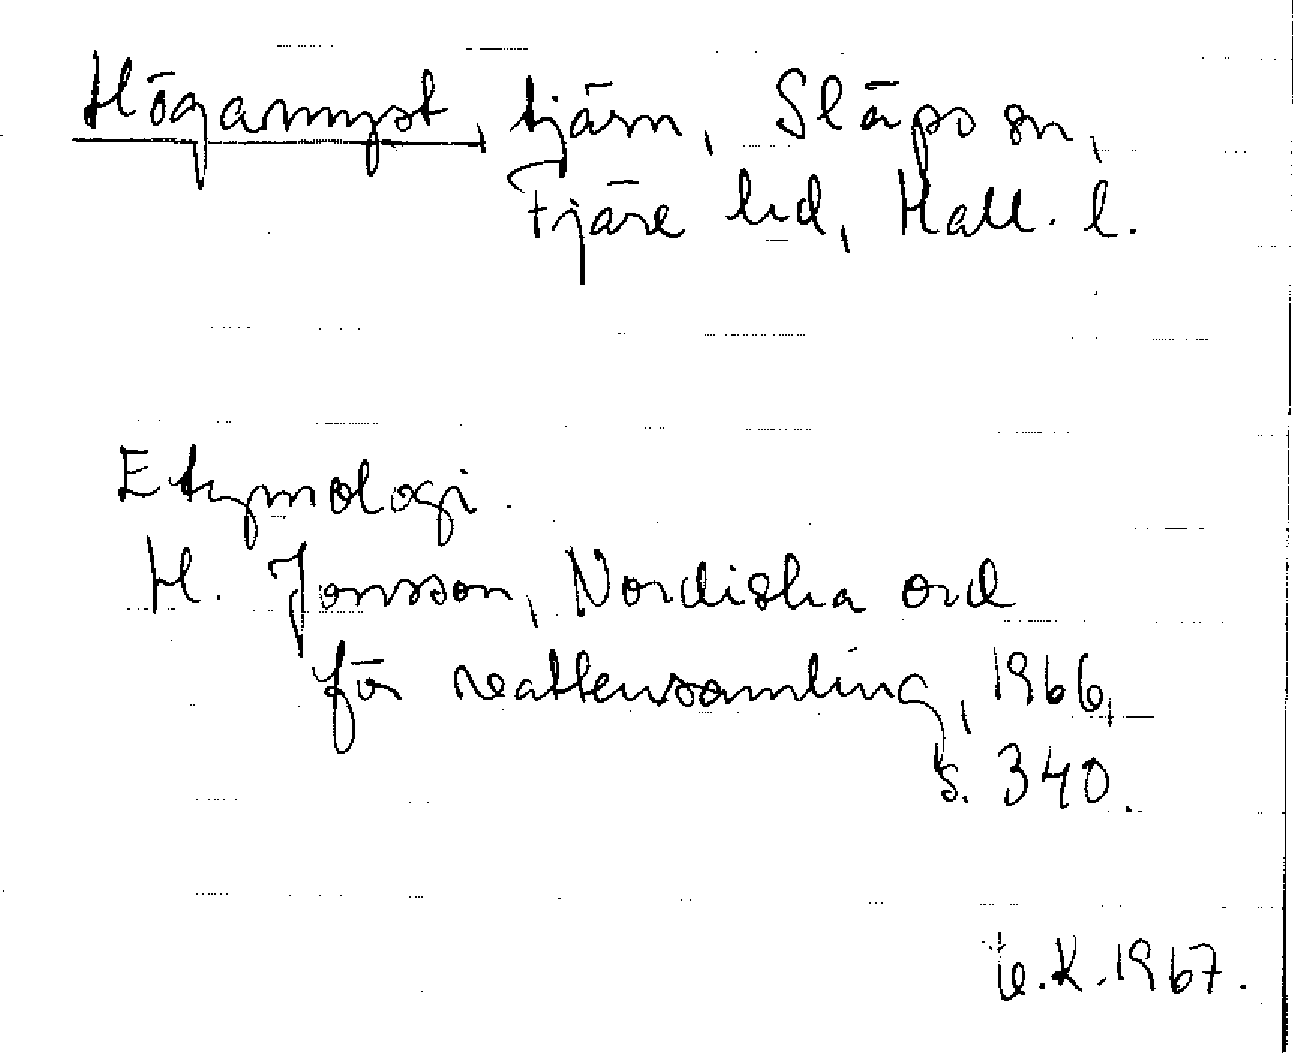 Högamyst, tjärn, Släps sn,
Fjäre hd, Hall. l.
Etymologi.
H. Jonsson, Nordiska ord
för vattensamling, 1966,
s. 340.
K. 1967.